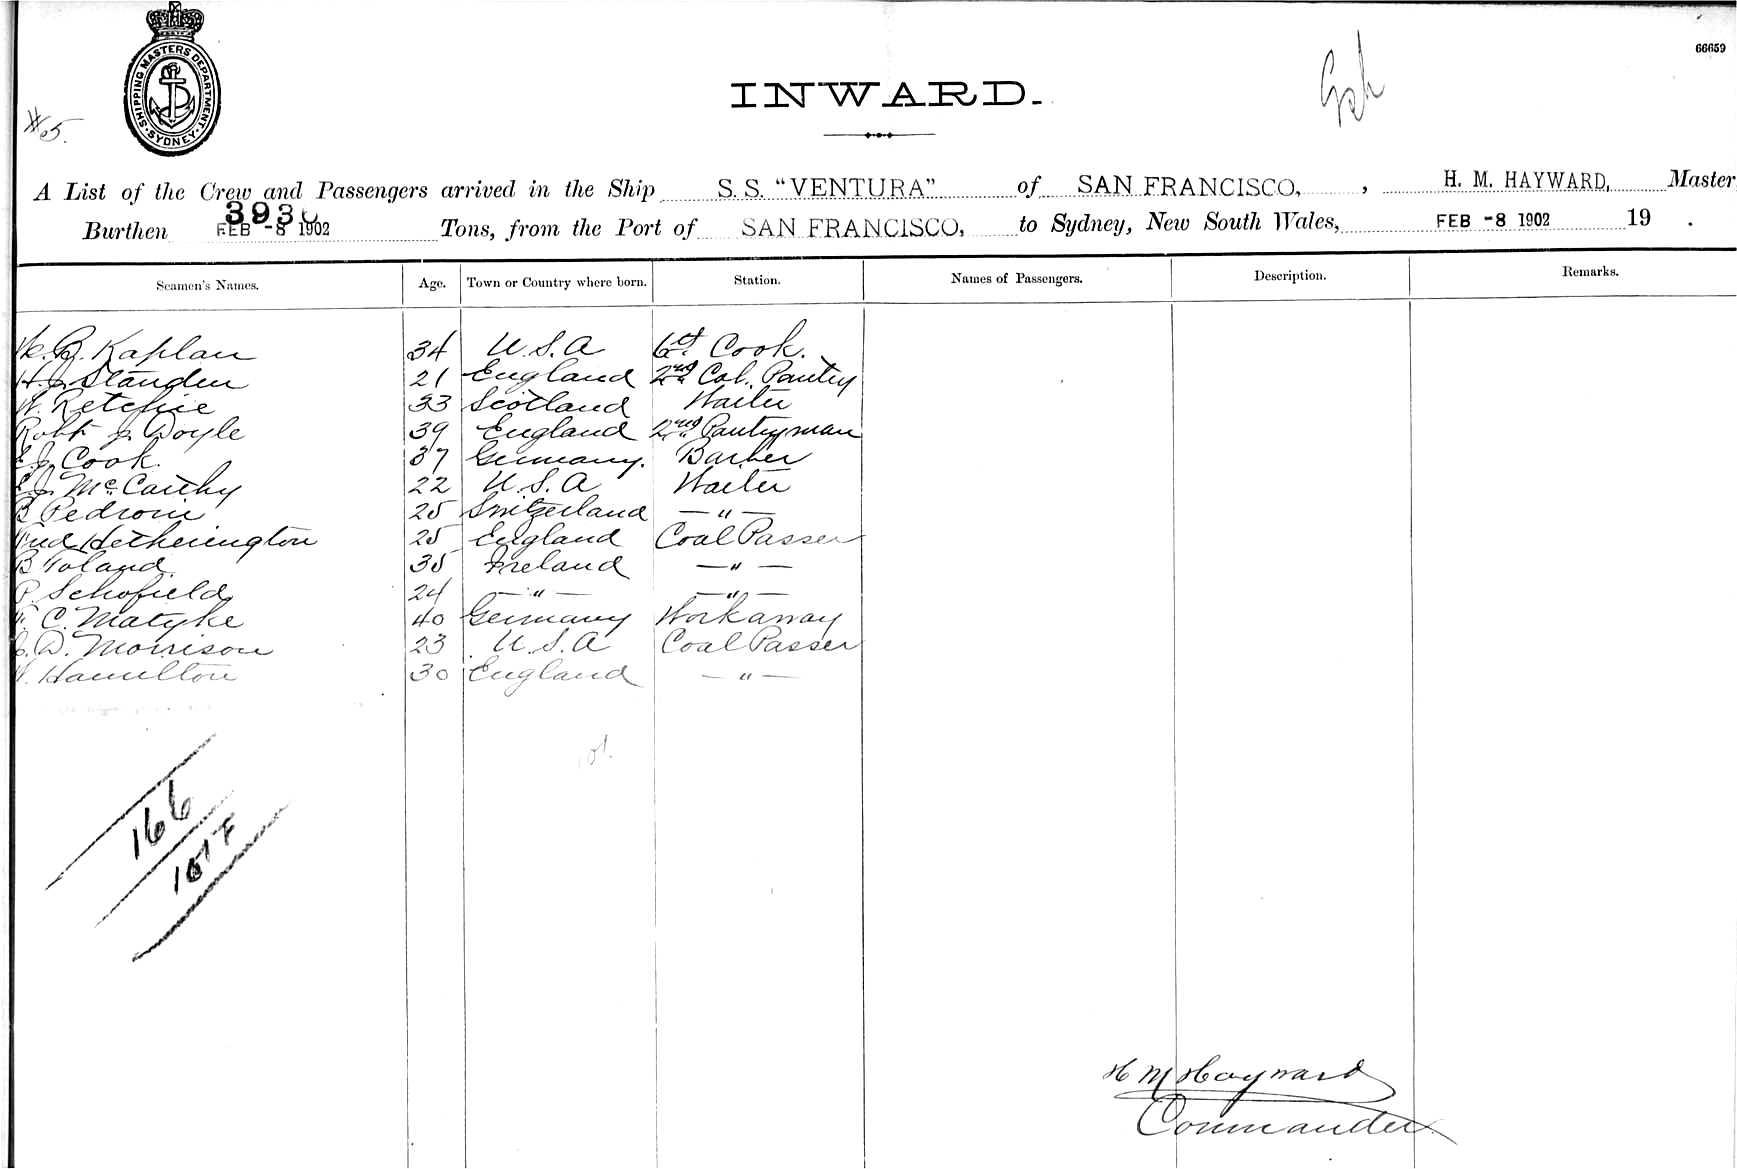 SHIPPING MASTERS DEPARTMENT
SYDNEY
66659
#5.
INWARD.
A List of the Crew and Passengers arrived in the Ship S. S. “VENTURA” of SAN FRANCISCO, , H. M. HAYWARD, Master
Burthen FEB -8 1902 Tons, from the Port of SAN FRANCISCO, to Sydney, New South Wales, FEB -8 1902 19 .
Seamen's Names. Age. Town or Country where born. Station. Names of Passengers. Description. Remarks.
B. Kaplan 34 U.S.A 6th Cook.
H.J. Standen 21 England 2nd Cab. Pantry
W. Retchie 33 Scotland Waiter
Robt J. Doyle 39 England 2nd Pantryman
E.J. Cook. 37 Germany. Barber
E.J. McCarthy 22 U.S.A Waiter
B Pedroni 25 Switzerland — " —
Fred Hetherington 25 England Coal Passer
B Toland 35 Ireland — " —
P. Schofield 24 — " — — " —
C. Matyke 40 Germany Workaway
D. Morrison 23 U.S.A Coal Passer
W. Hamilton 30 England — " —
166
H M Hayward
Commander